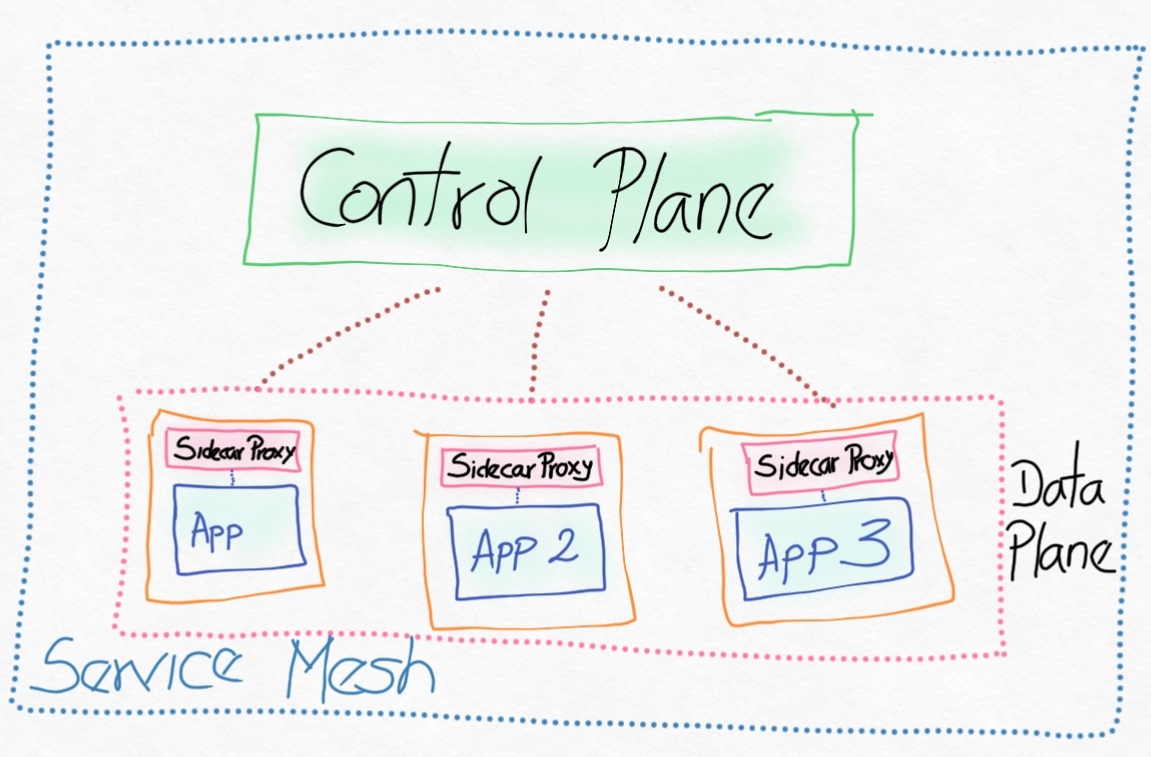 Control Plane
Sidecar Proxy
App
Sidecar Proxy
App 2
Sidecar Proxy
App 3
Data
Plane
Service Mesh